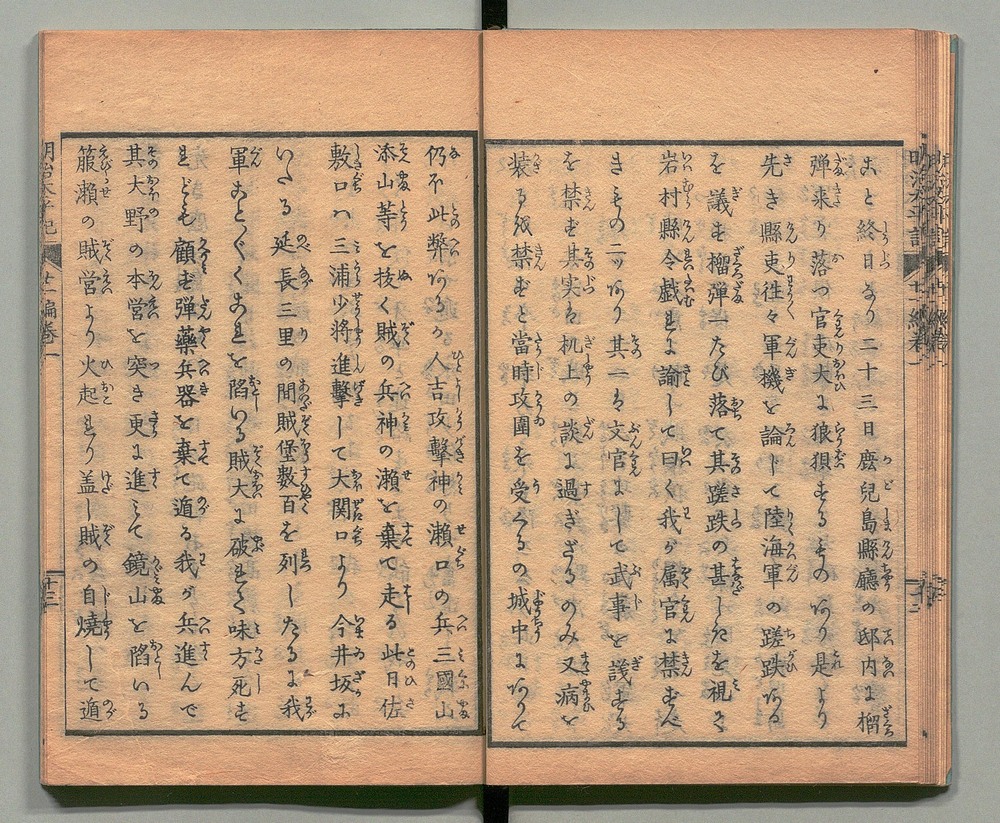 こと終日なり二十三日鹿兒島縣廳の邸内に榴
弾来り落つ官吏大に狼狽するものあり是より
先き縣吏往々軍機を論じて陸海軍の蹉跌ある
を議す榴弾一たび落て其蹉跌の甚しきを視て
岩村縣令戯れに諭して曰く我が属官に禁ずべ
きもの二ツあり其一は文官にして武事を議する
を禁ず其実は机上の談に過ぎざるのみ又病を
装るを禁ずと當時攻圍を受くるの城中にありて
仍ほ此弊あるか人吉攻撃神の瀬口の兵三國山
添山等を抜く賊の兵神の瀬を棄て走る此日佐
敷口ハ三浦少将進撃して大関口より今井坂に
いたる延長三里の間賊堡数百を列したるに我
軍ことごとくこれを陷いる賊大に破れて味方死す
れども顧ず弾藥兵器を棄て遁る我が兵進んで
其大野の本営を突き更に進みて鏡山を陷いる
箙瀬の賊営より火起れり盖し賊の自燒して遁
明治太平記
廿一編巻一
十二